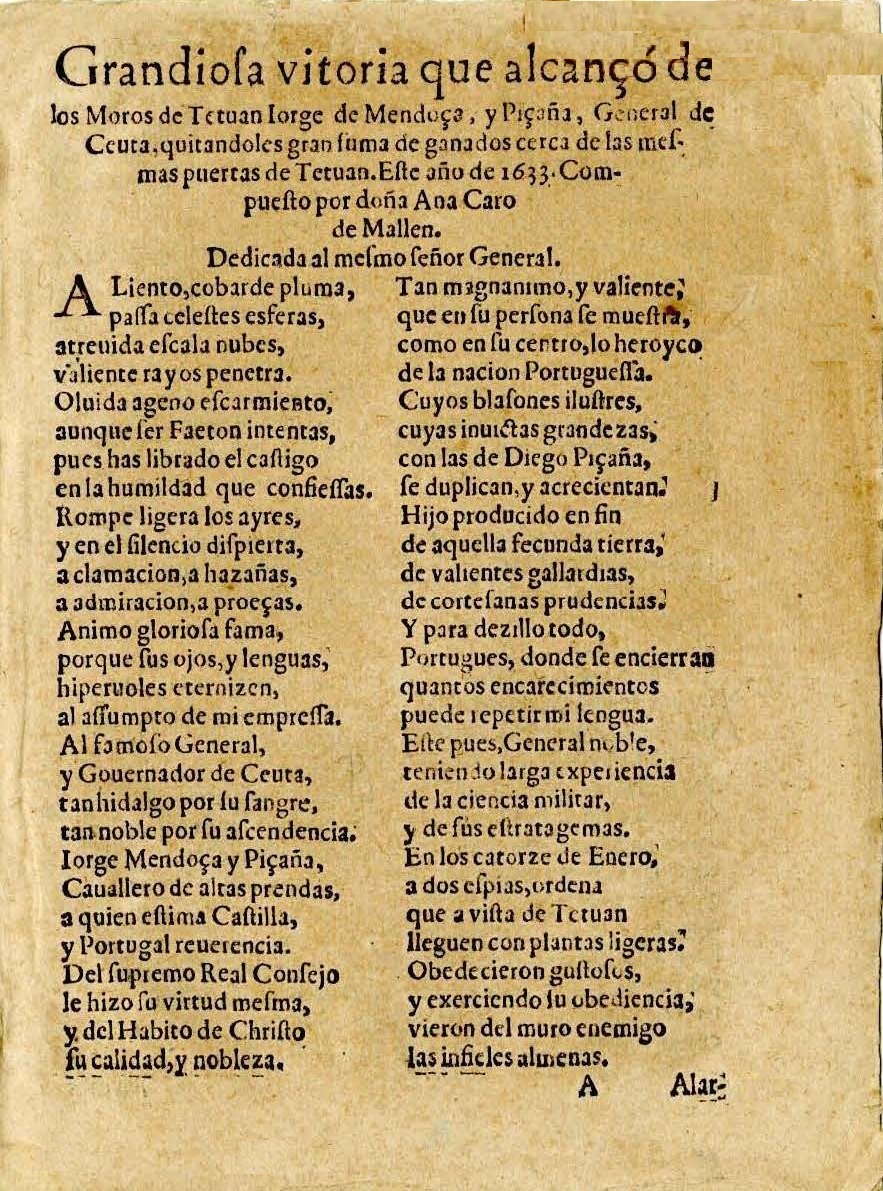 Grandiosa vitoria que alcançó de
los Moros de Tetuan Iorge de Mendoça, y Piçaña, General de
Ceuta, quitandoles gran suma de ganados cerca de las mes-
mas puertas de Tetuan. Este año de 1633. Com-
puesto por doña Ana Caro
de Mallen.
Dedicada al mesmo señor General.
ALiento, cobarde pluma,
passa celestes esferas,
atreuida escala nubes,
valiente rayos penetra.
Oluida ageno escarmiento,
aunque ser Faeton intentas,
pues has librado el castigo
en la humildad que confiessas.
Rompe ligera los ayres,
y en el silencio dispierta,
a clamacion, a hazañas,
a admiracion, a proeças.
Animo gloriosa fama,
porque sus ojos, y lenguas,
hiperuoles eternizen,
al assumpto de mi empressa.
Al famoso General,
y Gouernador de Ceuta,
tan hidalgo por su sangre,
tan noble por su ascendencia.
Iorge Mendoça y Piçaña,
Cauallero de altas prendas,
a quien estima Castilla,
y Portugal reuerencia.
Del supremo Real Consejo
le hizo su virtud mesma,
y del Habito de Christo
su calidad, y nobleza.
Tan magnanimo, y valiente,
que en su persona se muestra,
como en su centro, lo heroyco
de la nacion Portuguessa.
Cuyos blasones ilustres,
cuyas inuictas grandezas,
con las de Diego Piçaña,
se duplican, y acrecientan.
Hijo producido en fin
de aquella fecunda tierra,
de valientes gallardias,
de cortesanas prudencias.
Y para dezillo todo,
Portugues, donde se encierran
quantos encarecimientos
puede repetir mi lengua.
Este pues, General noble,
teniendo larga experiencia
de la ciencia militar,
y de sus estratagemas.
En los catorze de Enero,
a dos espias, ordena
que a vista de Tetuan
lleguen con plantas ligeras.
Obedecieron gustosos,
y exerciendo su obediencia,
vieron del muro enemigo
las infieles almenas.
A Alar-